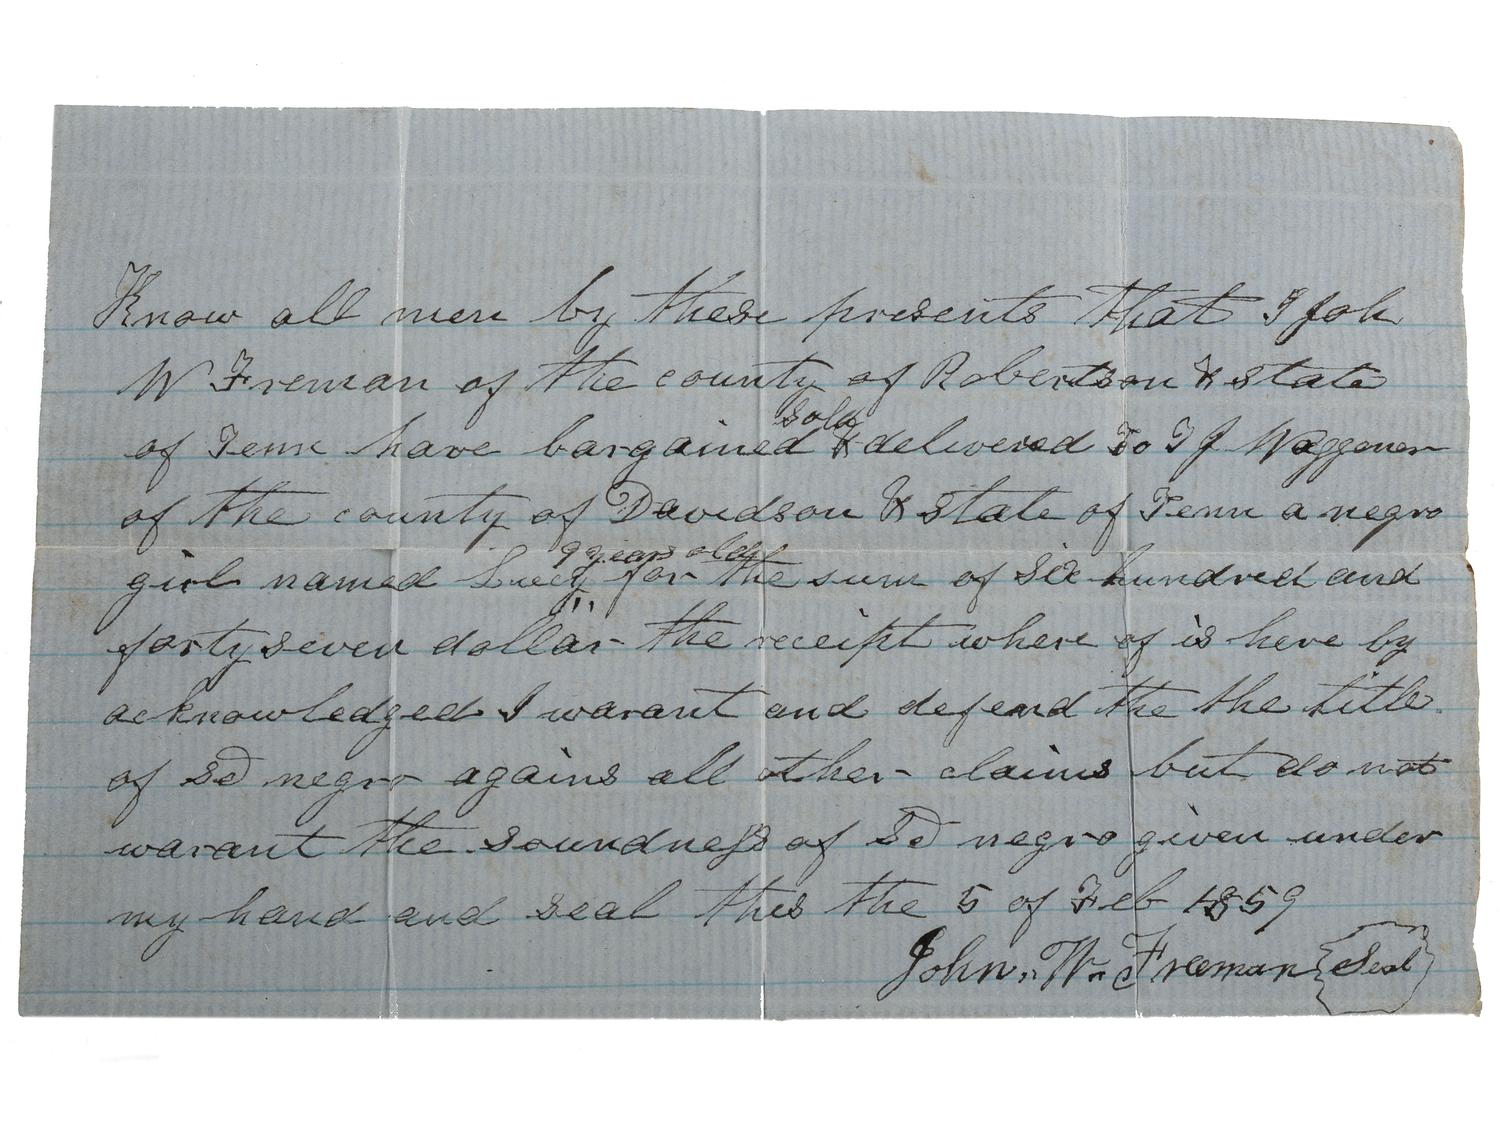 Know all men by these presents that I Joh
W Freman of the county of Robertson & state
sold
of Tenn have bargained & delivered To T J Waggoner
of the county of Davidson & state of Tenn a negro
9 years old
girl named Lucy for the sum of six hundred and
forty seven dollar the receipt where of is here by
acknowledged I warant and defend the the title
of sd negro agains all other claims but do not
warant the soundness of sd negro given under
my hand and seal this the 5 of Feb 1859
John. W. Freeman Seal